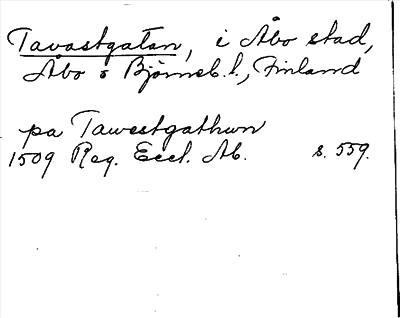 Tavastgatan, i Åbo stad,
Åbo o Björneb. l., Finland
pa Tawestgathwn
1509 Reg. Eccl. Ab. s. 559.